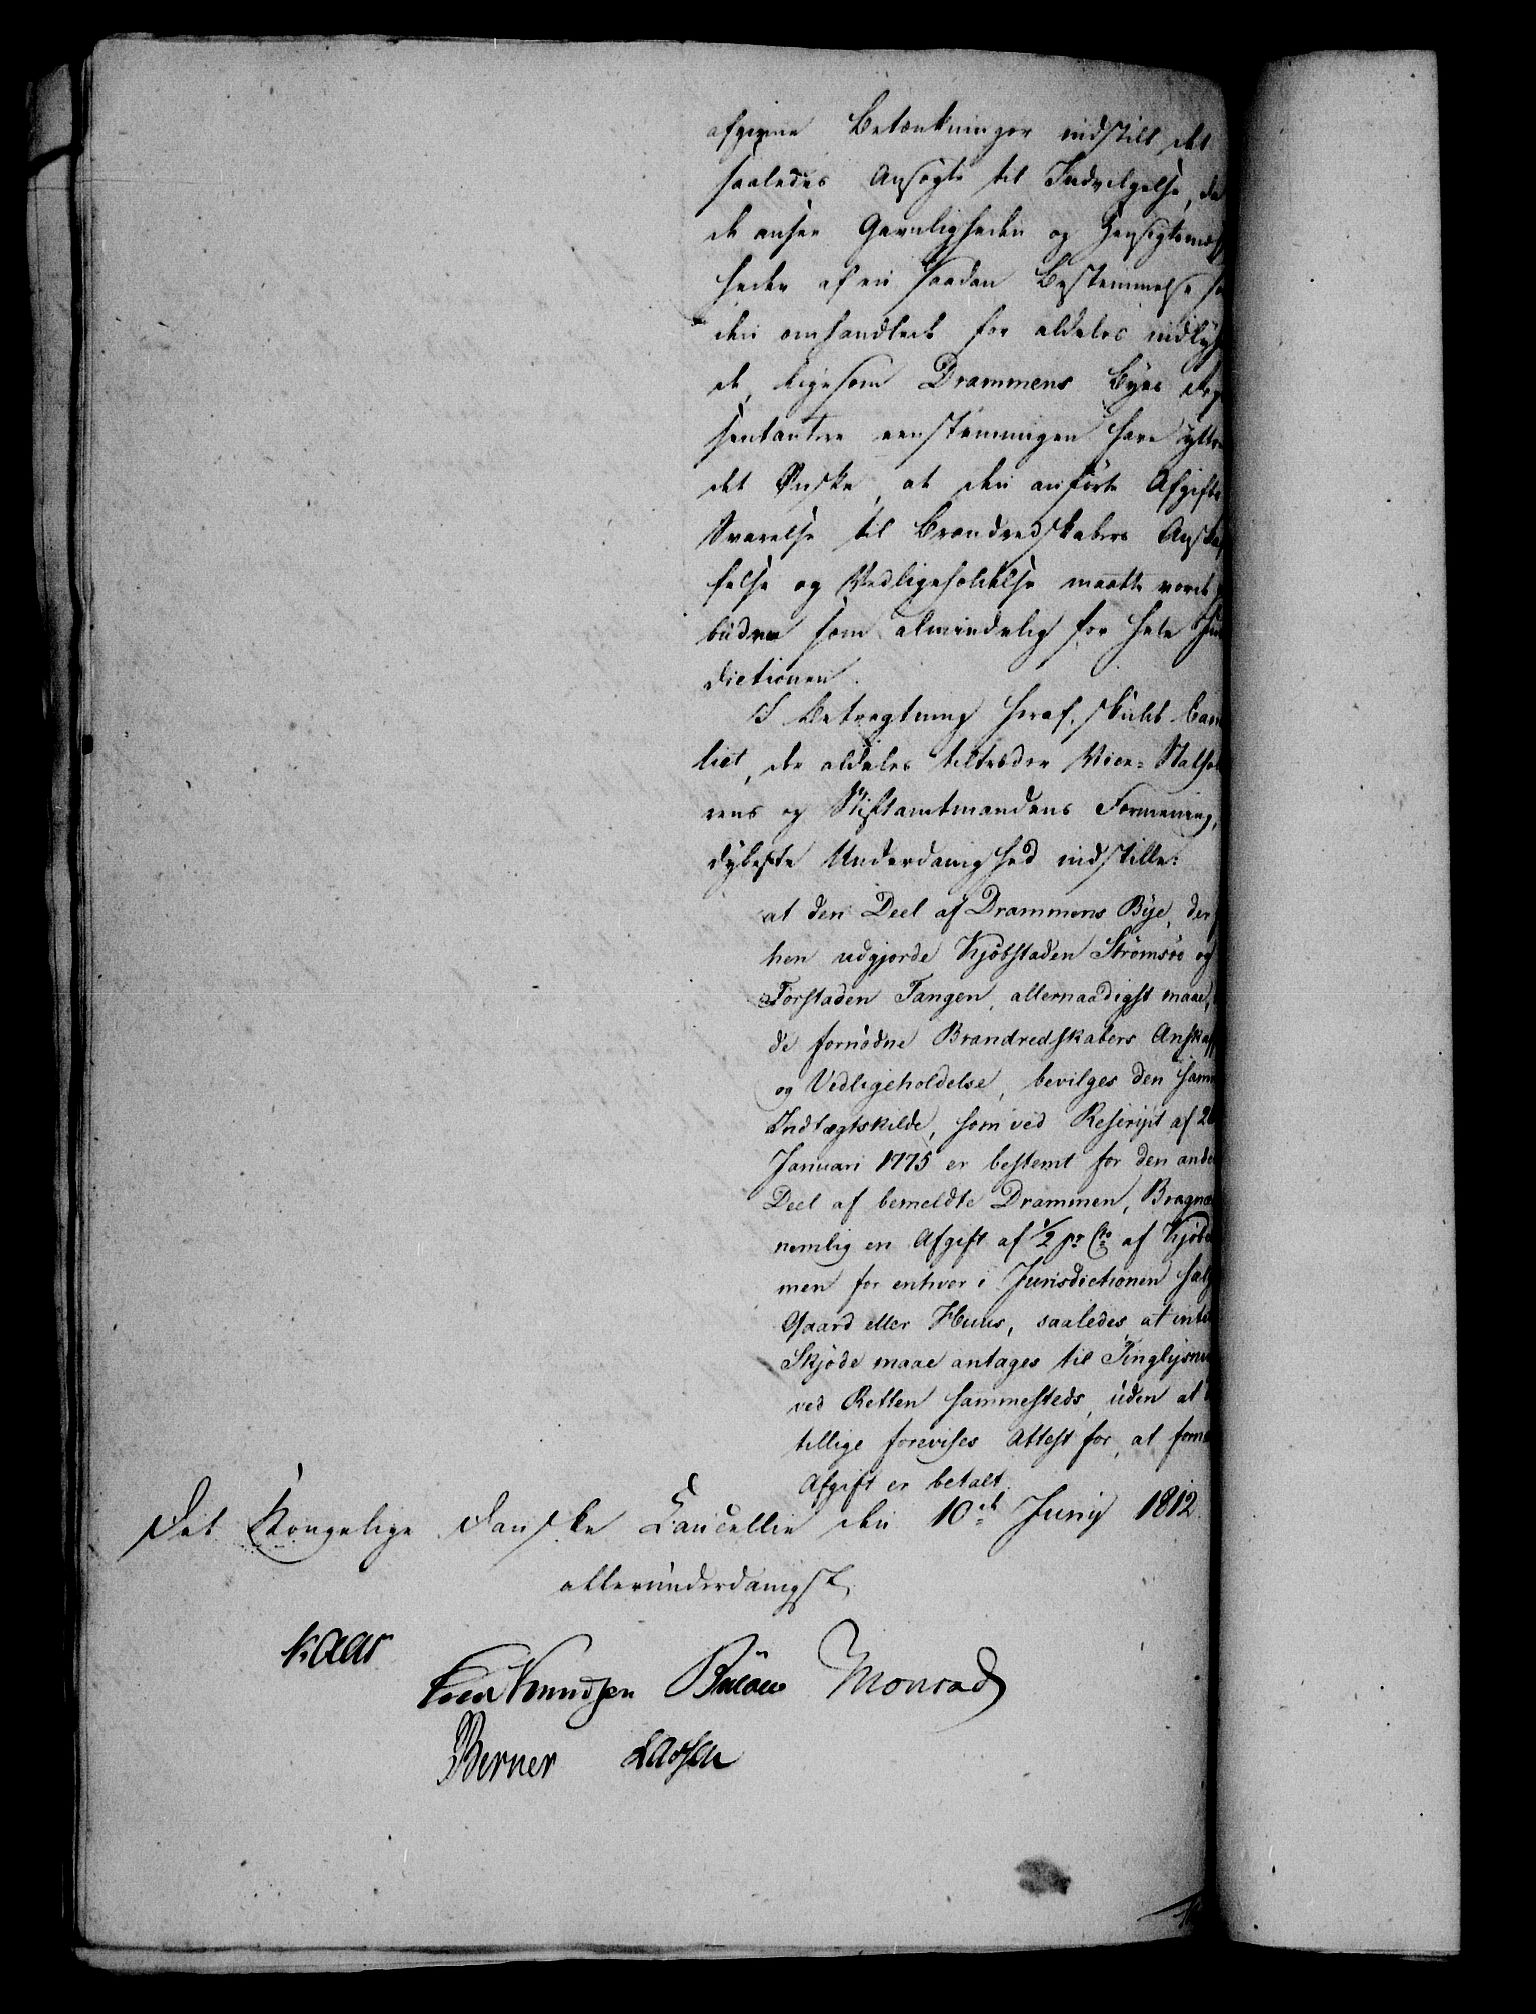 afgivne Betænkninger indstilt det
saaledes Ansøgte til Indvilgelse, da
de ansee Gavnligheden og Hensigtsmæss
heden af en saadan Bestemmelse so
den omhandlede for aldeles indlys
de, ligesom Drammens Byes Repræ
sentantere eenstemmigen have yttre
det Ønske, at den anførte Afgifts
Svarelse til Brandredskabers Anskaf
felse og Vedligeholdelse maatte vorde
buden som almindelig for hele Juris
dictionen.
I Betragtning heraf, skulde Can
liet, der aldeles tiltræder Vice-Stathol
rens og Stiftamtmandens Formening,
dybeste Underdanighed indstille:
at den Deel af Drammens Bye, der
hen udgjorde Kjøbstaden Strømsöe og
Forstaden Tangen, allernaadigst maae,
de fornødne Brandredskabers Anskaff
og Vedligeholdelse, bevilges den samm
Indtægtskilde, som ved Rescript af 2
Januari 1775 er bestemt for den ande
Deel af bemeldte Drammen, Bragnæ
nemlig en Afgift af 1/2 pr Cto af Kjøbe
men for enhver i Jurisdictionen solg
Gaard eller Huus, saaledes at intet
Skjöde maae antages til Tinglysni
ved Retten sammesteds, uden at
tillige forevises Attest for, at forme
Afgift er betalt.
Det Kongelige Danske Cancellie den 10de Junij 1812
allerunderdanigst
Kaas
Cold Knudsen Bülow Monrad
Berner Lassen